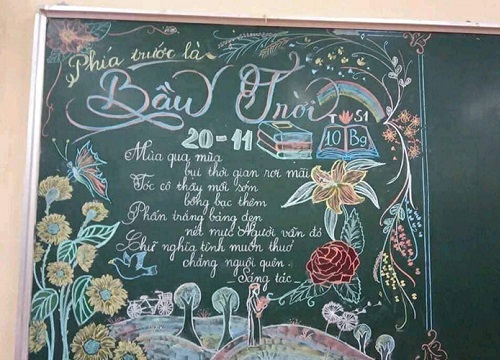 Phía trước là
Bầu Trời
T S1
20-11
10 B9
Mùa qua mùa
bụi thời gian rơi mãi
Tóc cô thầy mới sớm
bỗng bạc thêm
Phấn trắng bảng đen
nét mực Người vẫn đó
Chữ nghĩa tình muôn thuở
chẳng nguội quên.
_Sáng tác_